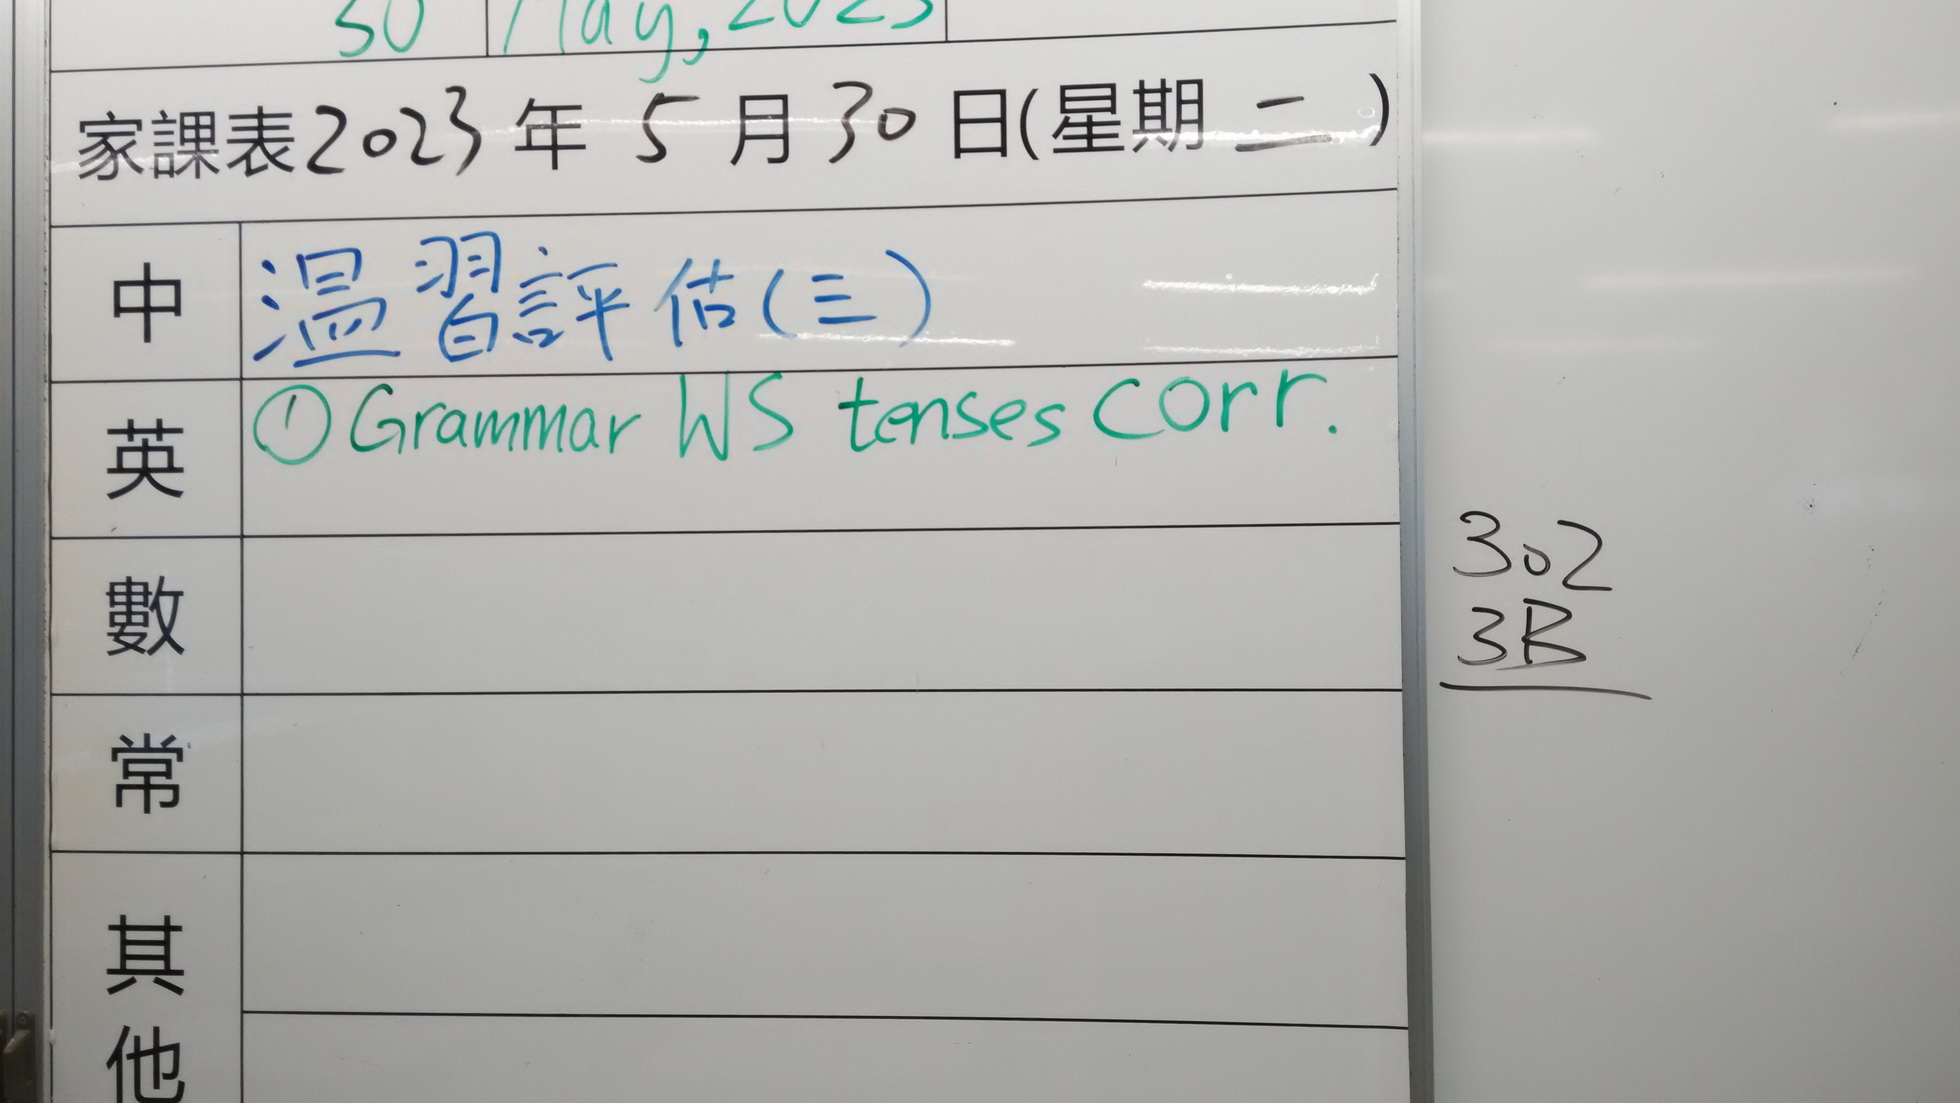 30 May, 2023
家課表2023年5月30日(星期二)
中 温習評估(三)
英 ①Grammar WS tenses corr.
數
常
其他
302
3B